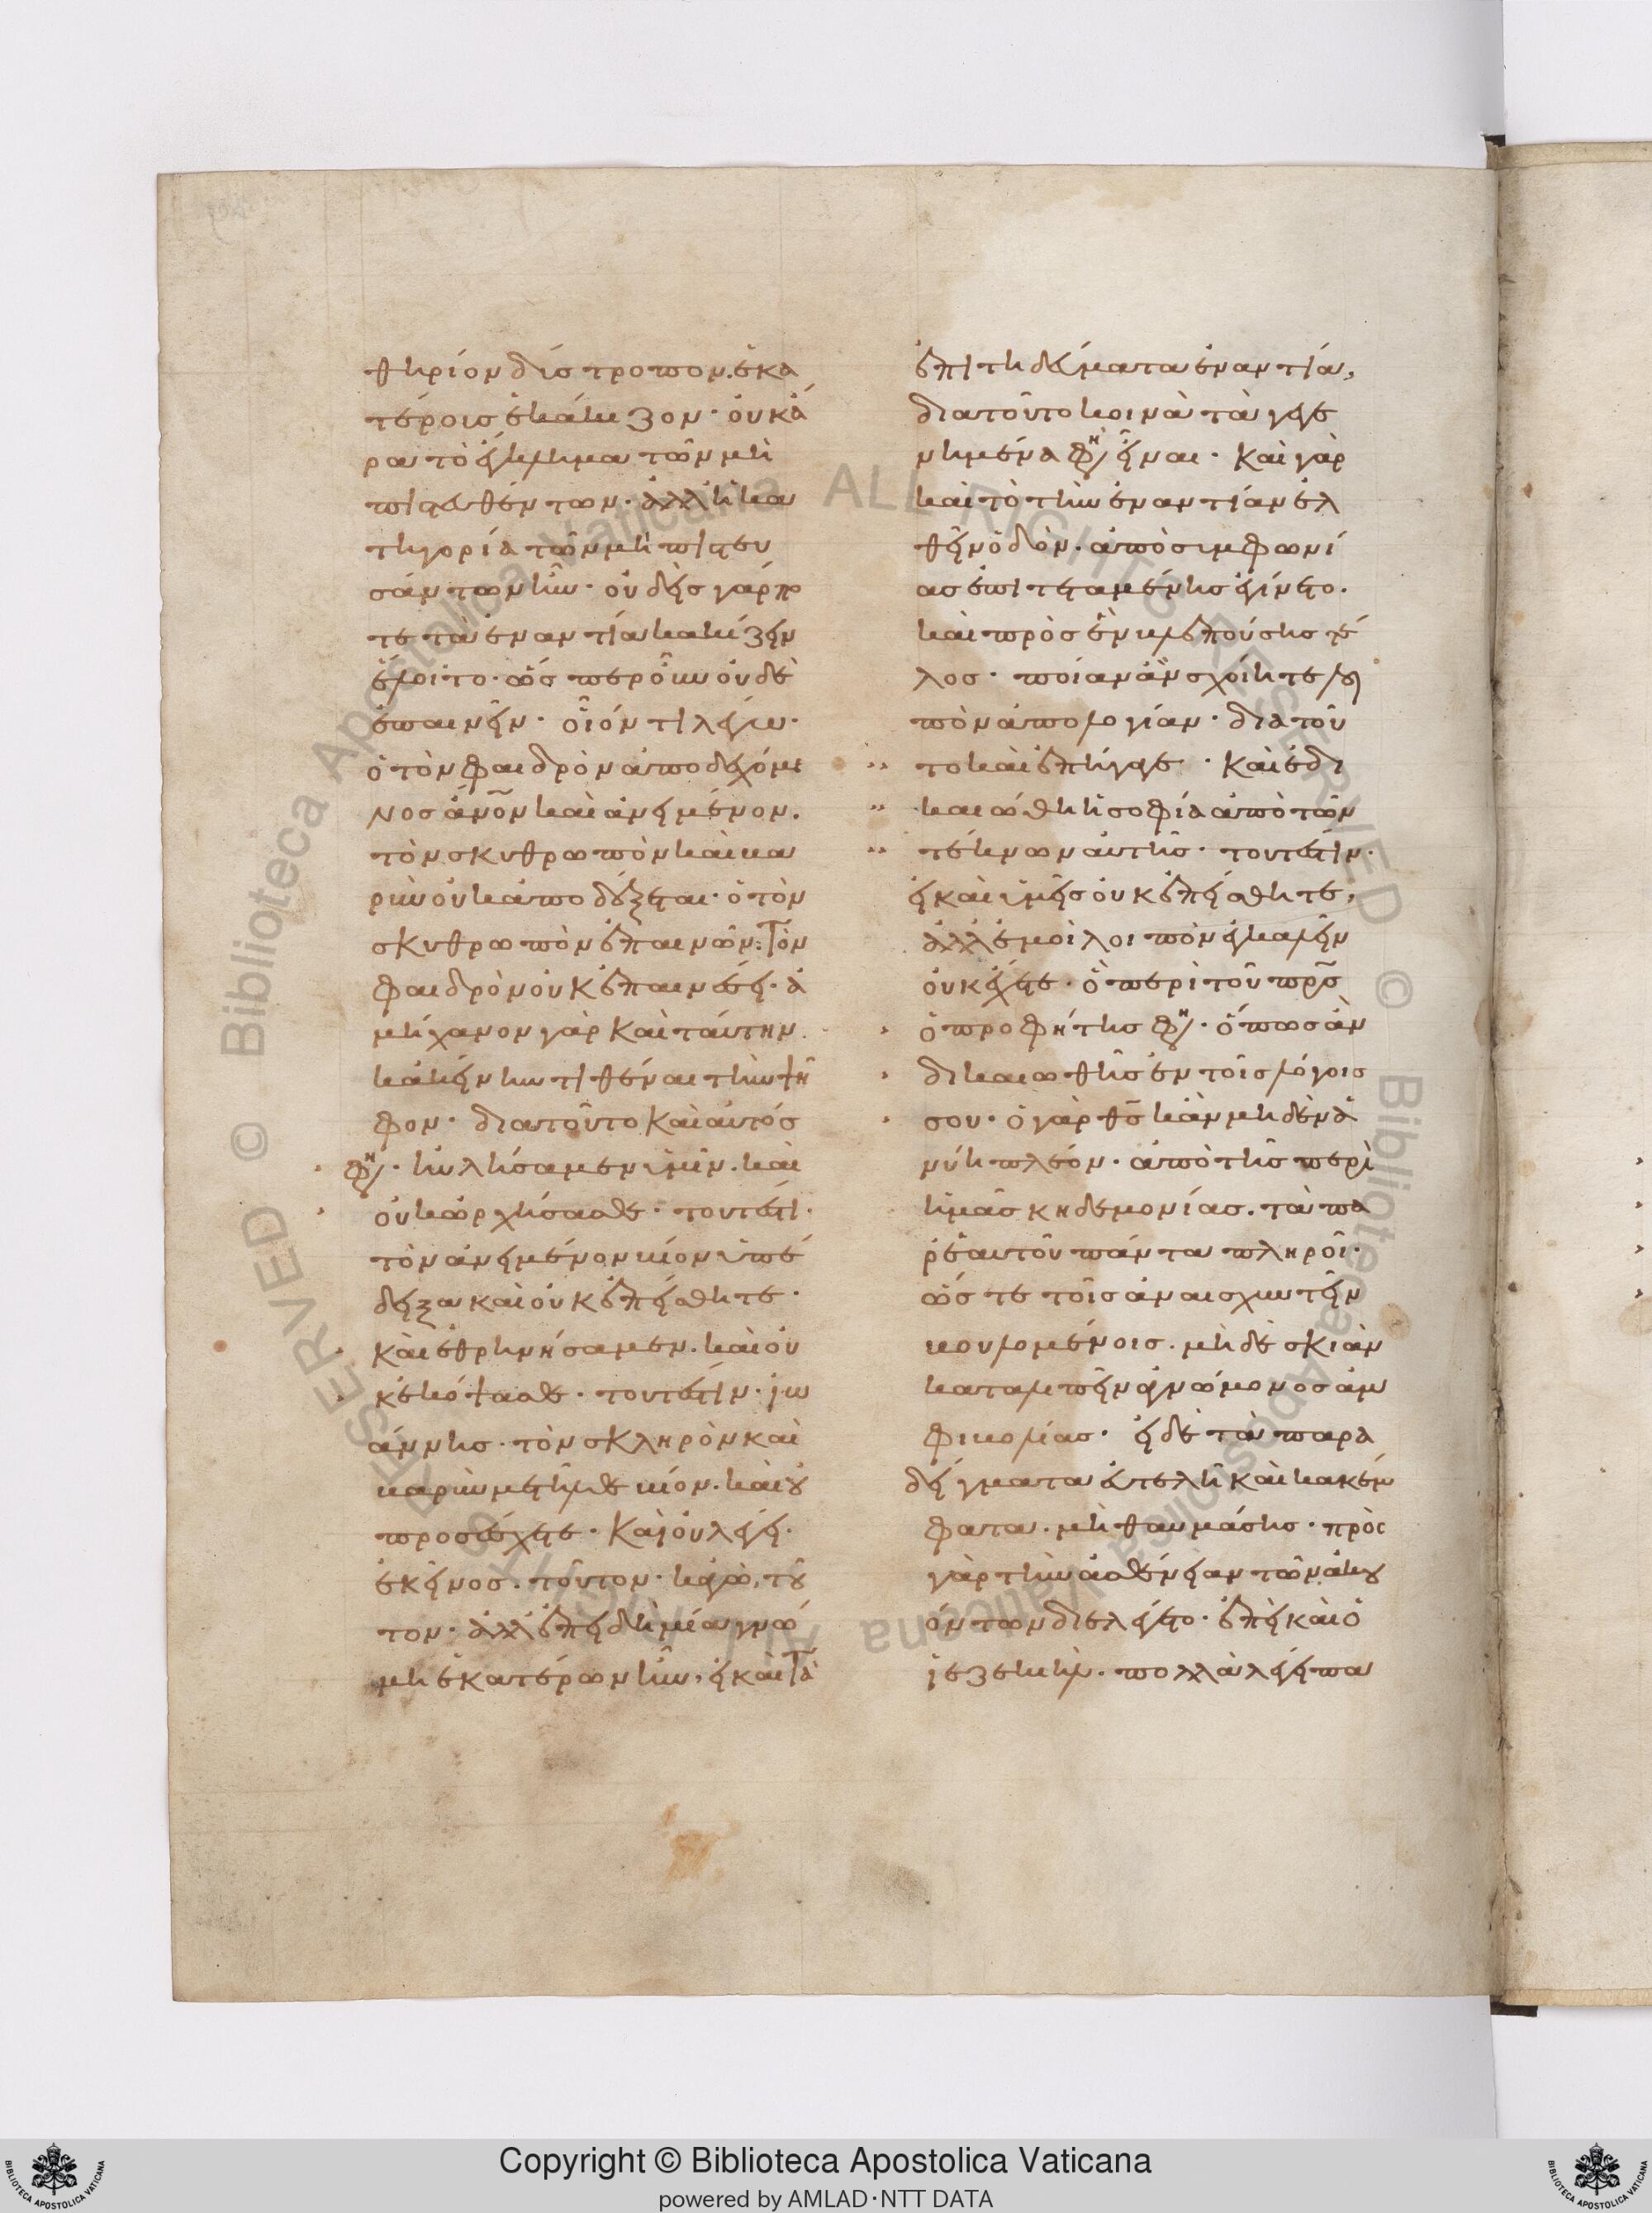 θηρίον δίστροπον. ἑκα
τέροις ἐκάκιζον· οὐκ ἄ
ρα τὸ ἔγκλημα τῶν μὴ
πιστευθέντων· ἀλλ' ἡ κα
τηγορία τῶν μὴ πιστευ
σάντων ἦν· οὐδεὶς γάρ πο
τε τὰ ἐναντία κακίζειν
ἕλοιτο· ὥσπερ οὖν οὐδὲ
ἐπαινεῖν· οἷόν τι λέγω·
ὁ τὸν φαιδρὸν ἀποδεχόμε
νος ἄνον καὶ ἀνειμένον.
τὸν σκυθρωπὸν καὶ βα
ρὺν οὐκ ἀποδέξεται· ὁ τὸν
σκυθρωπὸν ἐπαινῶν· τὸν
φαιδρὸν οὐκ ἐπαινέσει· ἀ
μήχανον γὰρ καὶ ταύτην
κἀκείνην τιθέναι τὴν ψῆ
φον· διατοῦτο καὶ αὐτός
φη· ηὐλήσαμεν ὑμῖν. καὶ
οὐκ ὠρχήσασθε· τουτέστι·
τὸν ἀνειμένον βίον ὑπέ
δειξα καὶ οὐκ ἐπείσθητε·
καὶ ἐθρηνήσαμεν. καὶ οὐ
κ ἐκόψασθε· τουτέστιν· ἰω
άννης· τὸν σκληρὸν καὶ
βαρὺν μετῆλθε βίον. καὶ οὐ
προσέσχετε· καὶ οὐ λέγει·
ἐκεῖνος. τοῦτον· κἀγὼ, τοῦ
τον· ἀλλ' ἐπειδὴ μία γνώ
μη ἑκατέρων ἦν, εἰ καὶ τὰ
ἐπιτηδεύματα ἐναντία,
διατοῦτο κοινὰ τὰ γεγε
νημένα φη εἶναι· καὶ γὰρ
καὶ τὸ τὴν ἐναντίαν ἐλ
θεῖν ὁδὸν. ἀπὸ συμφωνί
ας ἐπιτεταμένης ἐγίνετο.
καὶ πρὸς ἓν βλεπούσης τέ
λος· ποίαν ἂν σχοίητε λοι
πὸν ἀπολογίαν· διατοῦ
το καὶ ἐπήγαγε· καὶ ἐδι
καιώθη ἡ σοφία ἀπὸ τῶν
τέκνων αὐτῆς· τουτέστιν·
εἰ καὶ ὑμεῖς οὐκ ἐπείσθητε,
ἀλλ' ἐμοὶ λοιπὸν ἐγκαλεῖν
οὐκ ἔχετε· ὃ περὶ τοῦ πρσ
ὁ προφήτης φη· ὅπως ἂν
δικαιωθῇς ἐν τοῖς λόγοις
σου· ὁ γὰρ θσ κἂν μηδὲν ἀ
νύῃ πλέον· ἀπὸ τῆς περὶ
ἡμᾶς κηδεμονίας. τὰ πα
ρ' ἑαυτοῦ πάντα πληροῖ·
ὥστε τοῖς ἀναισχυντεῖν
βουλομένοις. μηδὲ σκιὰν
καταλιπεῖν ἀγνώμονος ἀμ
φιβολίας· εἰ δὲ τὰ παρα
δείγματα εὐτελῆ καὶ κακέμ
φατα. μὴ θαυμάσῃς· πρὸς
γὰρ τὴν ἀσθένειαν τῶν ἀκου
όντων διελέγετο· ἐπεὶ καὶ ὁ
ἰεζεκιὴλ. πολλὰ λέγει πα